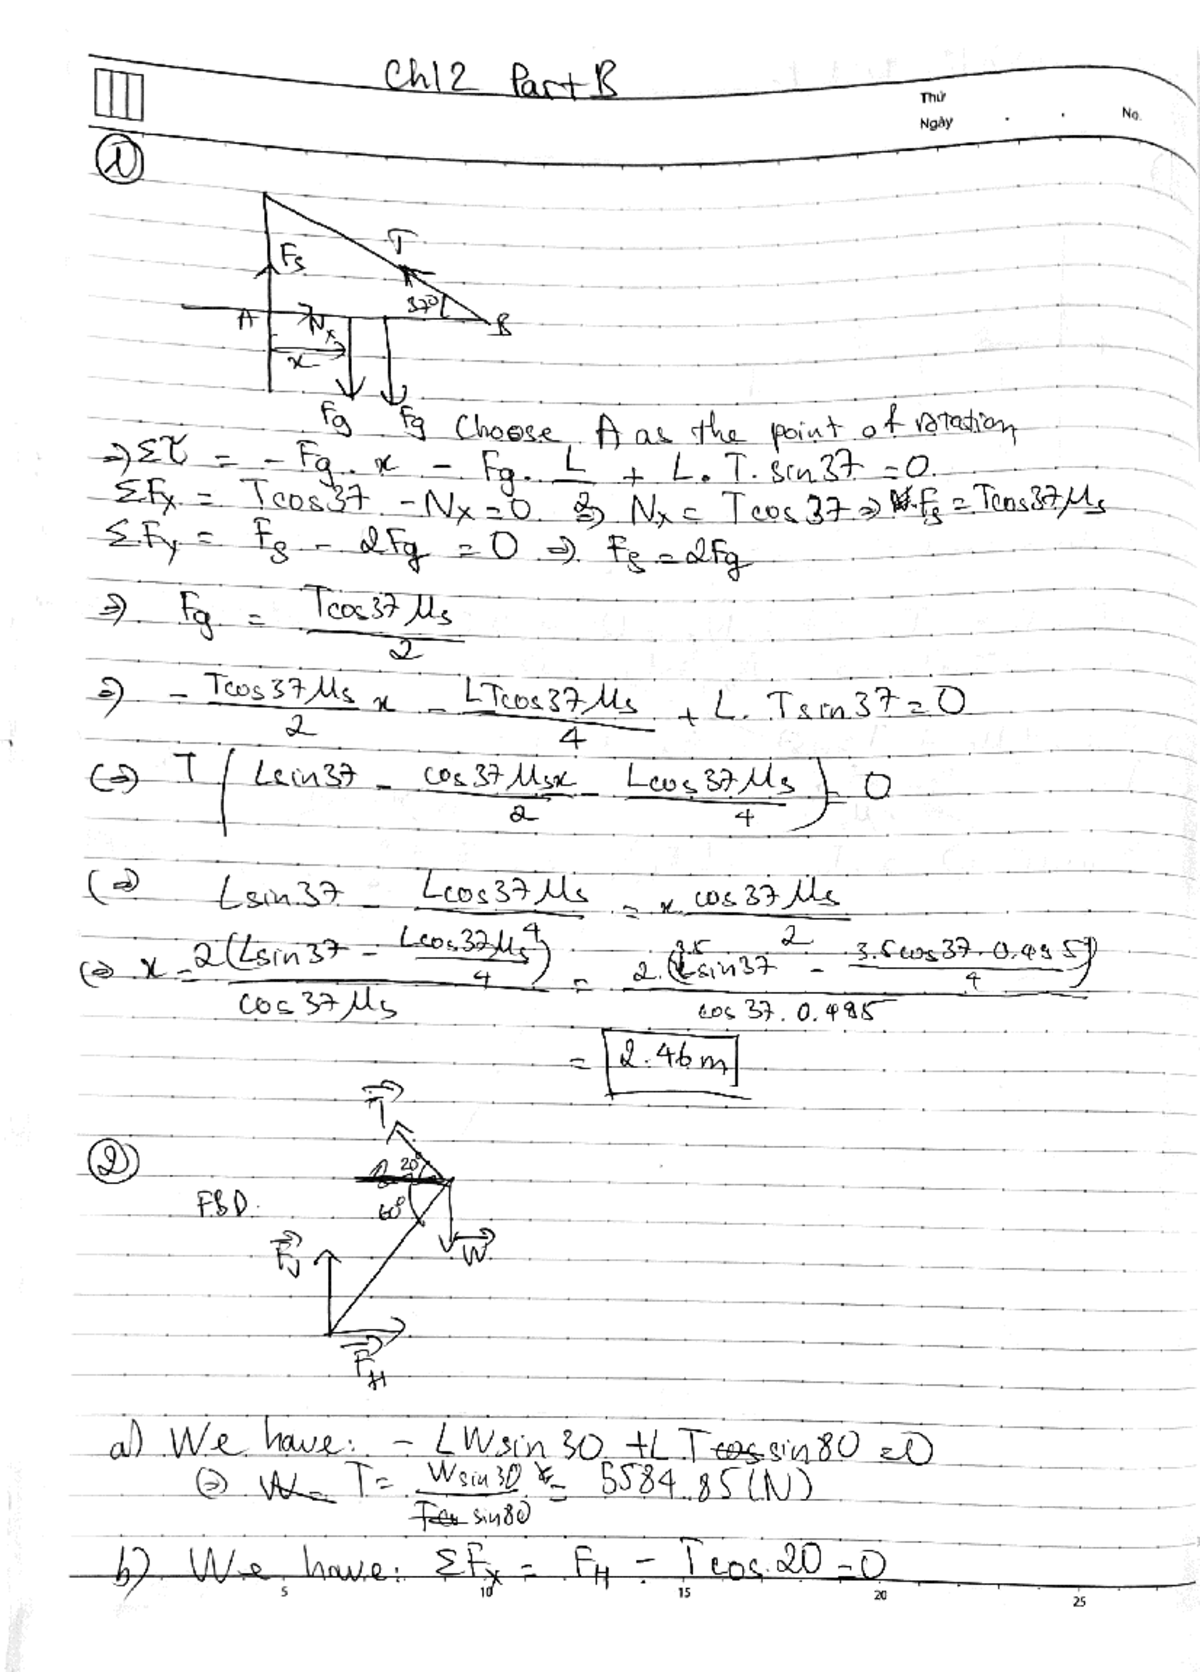 Ch12 Part B
Thứ
Ngày
No.
1
T
Fs
37°
A
Nx
B
x
Fg Fg Choose A as the point of rotation
=> Στ = - Fg. x - Fg. L/2 + L. T. sin37 = 0
ΣFx = Tcos37 - Nx = 0 => Nx = Tcos37 => Fs = Tcos37 μs
ΣFy = Fs - 2Fg = 0 => Fs = 2Fg
=> Fg = Tcos37 μs / 2
=> - Tcos37 μs / 2 x - LTcos37 μs / 4 + L. Tsin37 = 0
(=) T ( Lsin37 - cos37 μs x / 2 - Lcos37 μs / 4 ) = 0
(=) Lsin37 - Lcos37 μs / 4 = x. cos37 μs / 2
(=) x = 2(Lsin37 - Lcos37 μs / 4) / cos37 μs = 2.(3.5 sin37 - 3.5cos37.0.495 / 4) / cos37.0.495
= 2.46m
2
T
20°
FBD.
60°
Fv
W
FH
a) We have: - LWsin30 + LT sin80 = 0
(=) T = Wsin30 / sin80 = 5584.85 (N)
b) We have: ΣFx = FH - Tcos20 = 0
5 10 15 20 25